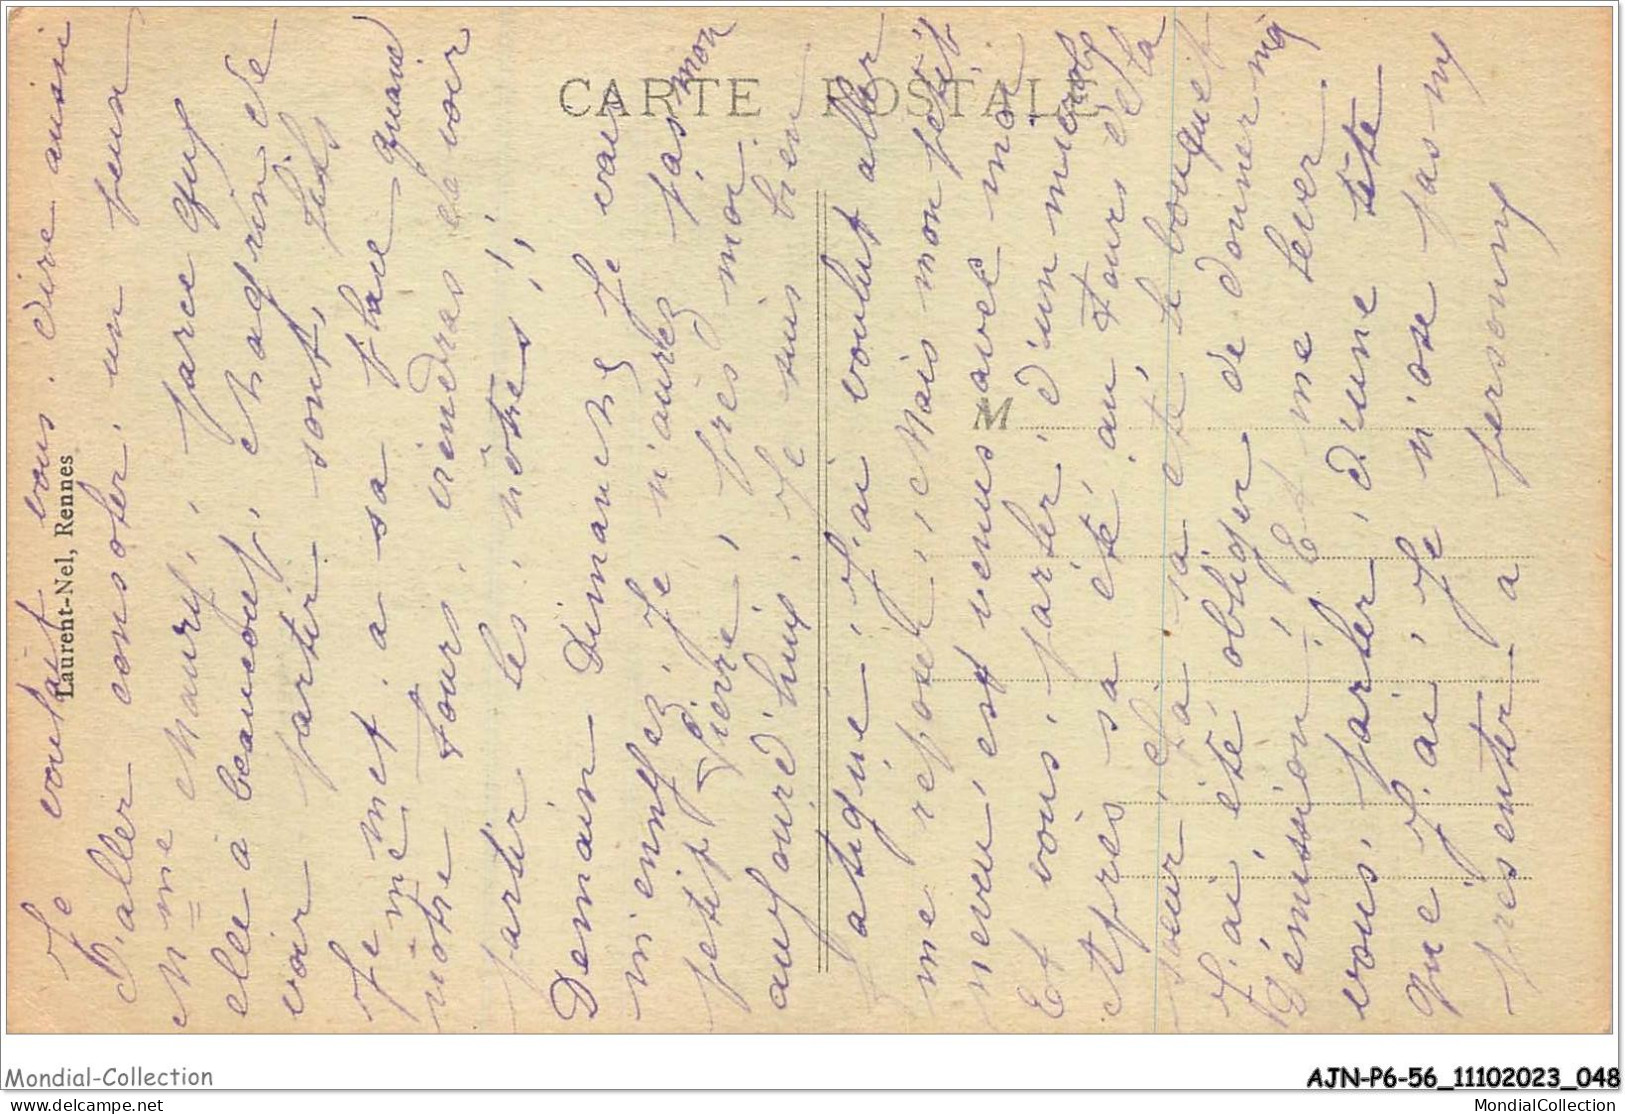 CARTE POSTALE
Laurent-Nel, Rennes
M
Je voulait vous. dire aussi
D'aller consoler, un peux
Mme Maury, parce que
elle à beaucoup, chagrine de
voir partir sont, fils
Je me met à sa place quand
même
notre tours, viendras de voir
partir les, nôtres!,
Demain Dimanche Je vais
m'ennyez, Je n'aurez pas mon
petit Pierre, près moi.
aujourd'hui. Je suis bien
Fatigue, J'ai voulut aller
me reposer, Mais mon petit
neveu, est venus avec moi
Et vous, parler, d'un
Après sa été, au Tours de la
soeur, La sa été, le bouquet
J'ai, été obliger de donner ma
Démission, Et me lever.
vous, parler, d'une tête
que J'ai, Je n'ose pas my
présenter a personny
Mondial-Collection
AJN-P6-56_11102023_048
www.delcampe.net
MondialCollection